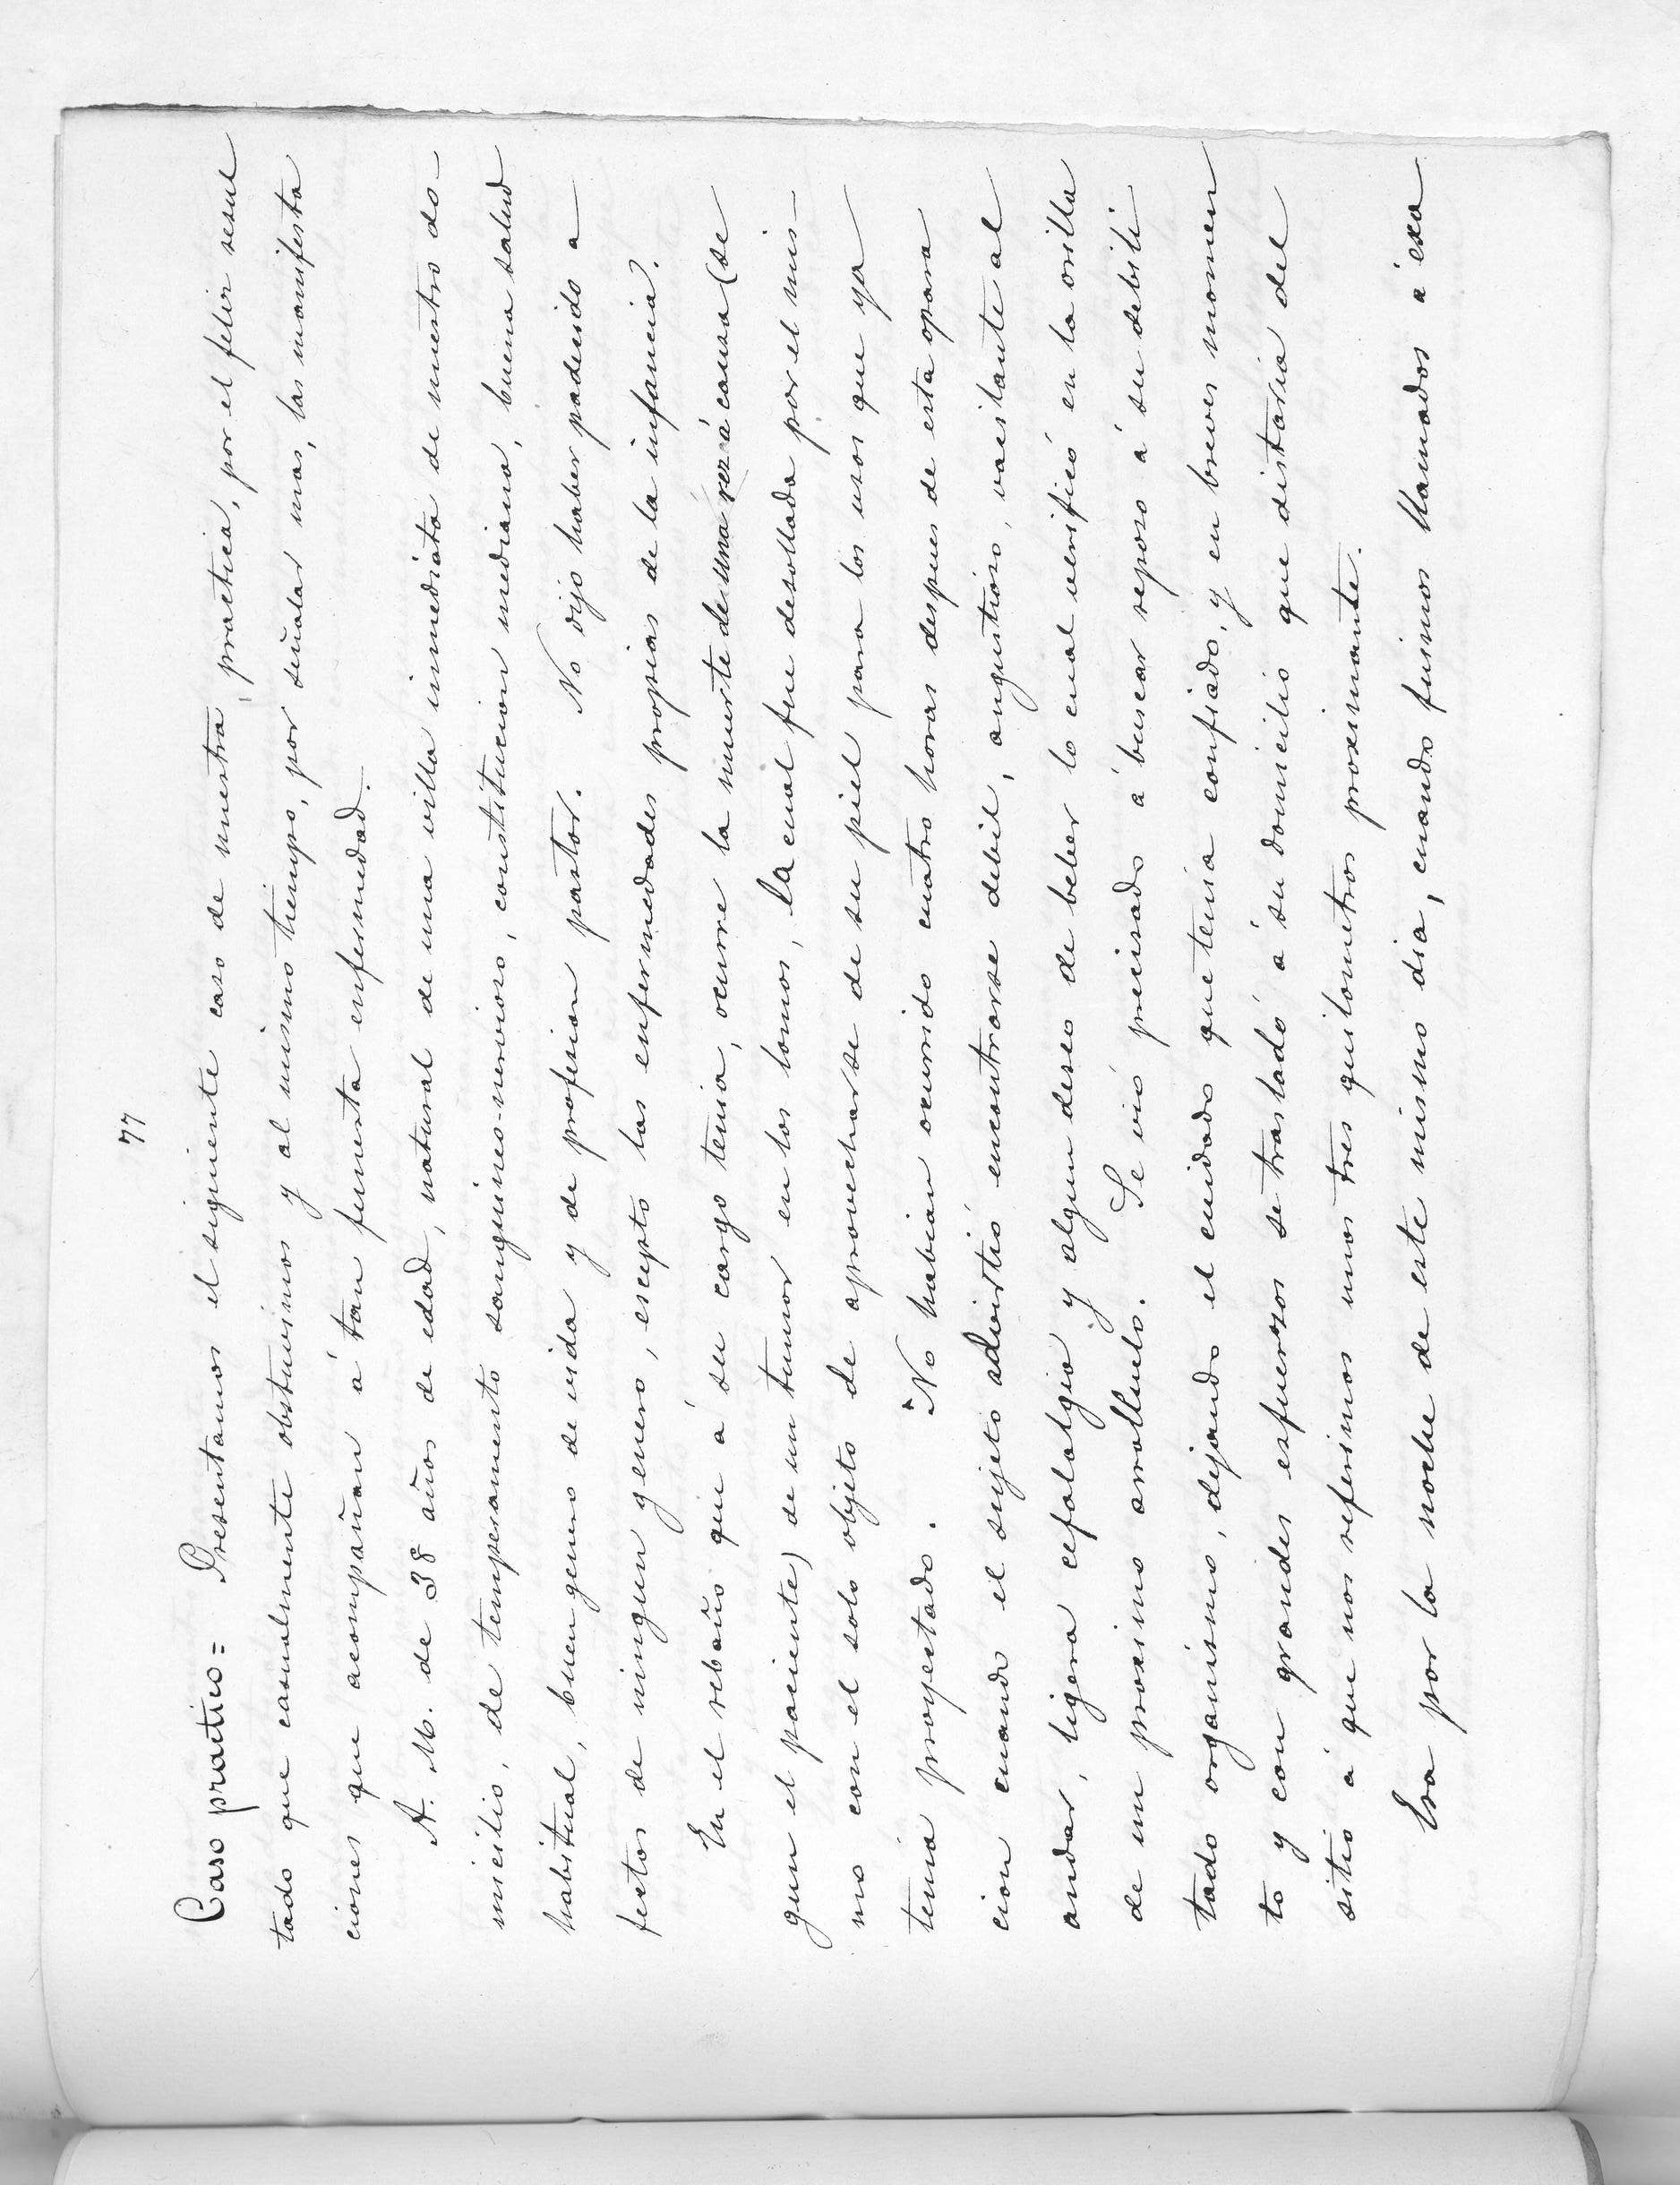 77
Caso pratico = Presentamos el siguiente caso de nuestra practica, por el feliz resul
tado que casualmente obstuvimos y al mismo tiempo, por señalar mas, las manifesta
ciones que acompañan á tan funesta enfermedad.
A. M. de 38 años de edad, natural de una villa inmediata de nuestro do-
micilio, de temperamento sanguineo-nervioso, constitucion mediana, buena salud
habitual, buen genero de vida y de profesion pastor. No dijo haber padecido a
fectos de ningun genero, escepto las enfermedades propias de la infancia.
En el rebaño que á su cargo tenia, ocurre la muerte de una rez á causa (se
gun el paciente) de un tumor en los lomos, la cual fue desollada por el mis-
mo con el solo objeto de aprovecharse de su piel para los usos que ya
tenia proyectado. No habian ocurrido cuatro horas despues de esta opara
cion cuando el sujeto advirtió encontrarse debil, angustioso, vacilante al
andar, ligera cefalalgia y algun deseo de beber lo cual verificó en la orilla
de un proximo arolluelo. Se vió precisado á buscar reposo á su debili
tado organismo, dejando el cuidado que tenia confiado, y en breves momen
to y con grandes esfuerzos se trasladó á su domicilio que distaria del
sitio á que nos referimos unos tres quilometros proximante.
Era por la noche de este mismo dia, cuando fuimos llamados á exa